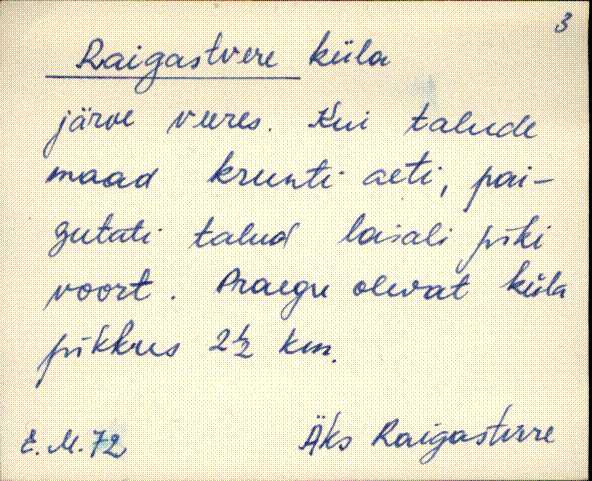 3
Raigastvere küla
järve veeres. Kui talude
maad krunti aeti, pai-
gutati talud laiali piki
voort. Praegu olevat küla
pikkus 2½ km.
E. M. 72 Äks Raigastvere